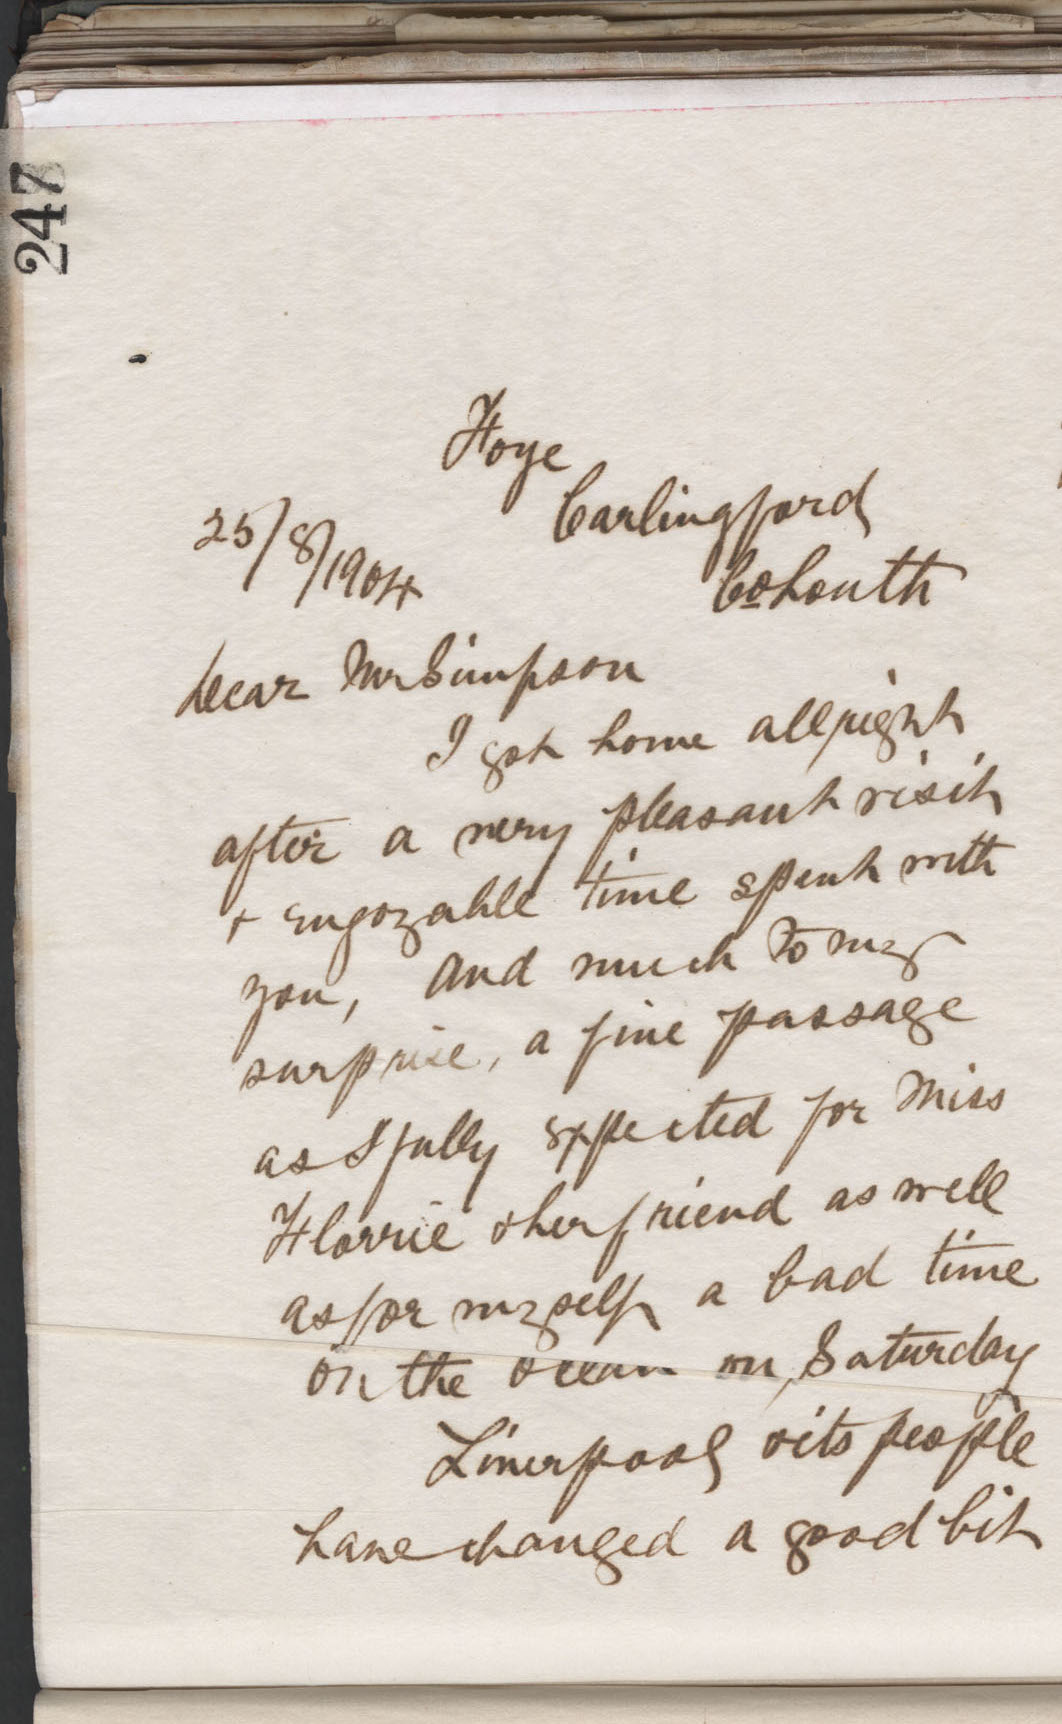 247
Foye
Carlingford
25/8/1904
Co Louth
Dear Mr Simpson
I got home allright
after a very pleasant visit
+ engoyable time spent with
you, and much to my
surprise, a fine passage
as I fully expected for Miss
Florrie & her friend as well
as for myself a bad time
on the ocean on Saturday
Liverpool & its people
have changed a good bit